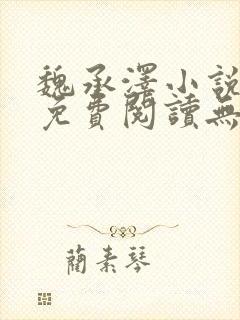 魏承澤小說
免費閱讀無
藺素琴